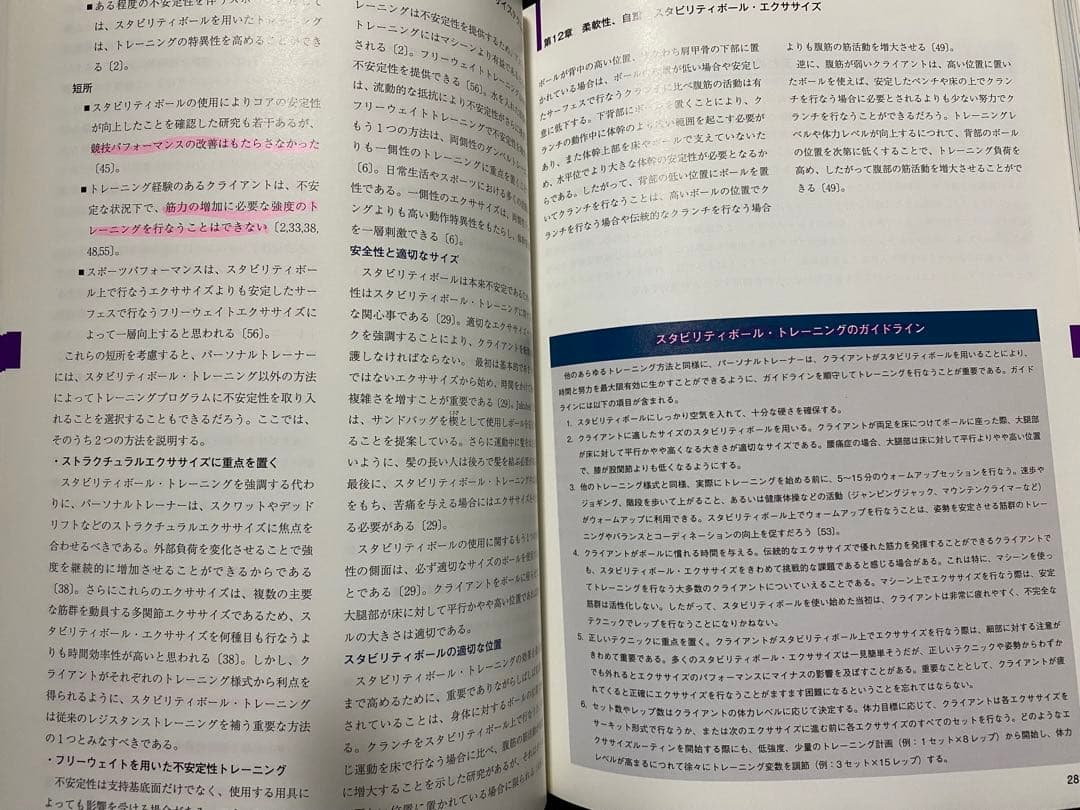 ある程度の不安定性を伴う
は、スタビリティボールを用いたトレーニング
は、トレーニングの特異性を高めることができ
る〔2〕。
短所
■スタビリティボールの使用によりコアの安定性
が向上したことを確認した研究も若干あるが、
競技パフォーマンスの改善はもたらさなかった
〔45〕。
■トレーニング経験のあるクライアントは、不安
定な状況下で、筋力の増加に必要な強度のト
レーニングを行なうことはできない〔2,33,38,
48,55〕。
■スポーツパフォーマンスは、スタビリティボー
ル上で行なうエクササイズよりも安定したサー
フェスで行なうフリーウェイトエクササイズに
よって一層向上すると思われる〔56〕。
これらの短所を考慮すると、パーソナルトレーナー
には、スタビリティボール・トレーニング以外の方法
によってトレーニングプログラムに不安定性を取り入
れることを選択することもできるだろう。ここでは、
そのうち2つの方法を説明する。
・ストラクチュラルエクササイズに重点を置く
スタビリティボール・トレーニングを強調する代わ
りに、パーソナルトレーナーは、スクワットやデッド
リフトなどのストラクチュラルエクササイズに焦点を
合わせるべきである。外部負荷を変化させることで強
度を継続的に増加させることができるからである
〔38〕。さらにこれらのエクササイズは、複数の主要
な筋群を動員する多関節エクササイズであるため、ス
タビリティボール・エクササイズを何種目も行なうよ
りも時間効率性が高いと思われる〔38〕。しかし、ク
ライアントがそれぞれのトレーニング様式から利点を
得られるように、スタビリティボール・トレーニング
は従来のレジスタンストレーニングを補う重要な方法
の1つとみなすべきである。
・フリーウェイトを用いた不安定性トレーニング
不安定性は支持基底面だけでなく、使用する用具に
よっても影響を受ける場合がある
レーニングは不安定性を提供するため
ニングにはマシーンより有益である
る〔2〕。フリーウェイトトレーニング
不安定性を提供できる〔56〕。水を入れた
は、流動的な抵抗により不安定性がさらに
フリーウェイトトレーニングで不安定性を
もう1つの方法は、両側性のダンベルトレー
りも一側性のトレーニングに重点を置くこと
〔6〕。日常生活やスポーツにおける多くの
性である。一側性のエクササイズは、両側性
ングよりも高い動作特異性をもたらし、
を一層刺激できる〔6〕。
安全性と適切なサイズ
スタビリティボールは本来不安定であるため、
性はスタビリティボール・トレーニングに
な関心事である〔29〕。適切なエクササイズ
クを強調することにより、クライアントを
護しなければならない。 最初は基本的で
ではないエクササイズから始め、時間をかけて
複雑さを増すことが重要である〔29〕。
は、サンドバッグを楔として使用しボールを
ることを提案している。さらに運動中に髪を
いように、髪の長い人は後ろで髪を結ぶ必要が
最後に、スタビリティボール・トレーニングに
をもち、苦痛を与える場合にはエクササイズを
る必要がある〔29〕。
スタビリティボールの使用に関するもう1つの
性の側面は、必ず適切なサイズのボールを
とである〔29〕。クライアントをボールに座らせ
大腿部が床に対して平行かやや高い位置であれば
ルの大きさは適切である。
スタビリティボールの適切な位置
スタビリティボール・トレーニングの効果を
まで高めるために、重要でありながらしばしば
されていることは、身体に対するボールの位置
る。クランチをスタビリティボール上で行なう
じ運動を床で行なう場合に比べ、腹筋の筋活動が
増大することを示した研究があるが、それは
い位置に置かれている場合に限られる
第12章 柔軟性、自重、スタビリティボール・エクササイズ
ボールが背中の高い位置、すなわち肩甲骨の下部に置
かれている場合は、ボールの位置が低い場合や安定し
たサーフェスで行なうクランチに比べ腹筋の活動は有
意に低下する。下背部にボールを置くことにより、ク
ランチの動作中に体幹のより広い範囲を起こす必要が
あり、また体幹上部を床やボールで支えていないた
め、水平位でより大きな体幹の安定性が必要となるか
らである。したがって、背部の低い位置にボールを置
いてクランチを行なうことは、高いボールの位置でク
ランチを行なう場合や伝統的なクランチを行なう場合
よりも腹筋の筋活動を増大させる〔49〕。
逆に、腹筋が弱いクライアントは、高い位置に置い
たボールを使えば、安定したベンチや床の上でクラン
チを行なう場合に必要とされるよりも少ない努力でク
ランチを行なうことができるだろう。トレーニングレ
ベルや体力レベルが向上するにつれて、背部のボール
の位置を次第に低くすることで、トレーニング負荷を
高め、したがって腹部の筋活動を増大させることがで
きる〔49〕。
スタビリティボール・トレーニングのガイドライン
他のあらゆるトレーニング方法と同様に、パーソナルトレーナーは、クライアントがスタビリティボールを用いることにより、
時間と努力を最大限有効に生かすことができるように、ガイドラインを順守してトレーニングを行なうことが重要である。ガイド
ラインには以下の項目が含まれる。
1. スタビリティボールにしっかり空気を入れて、十分な硬さを確保する。
2. クライアントに適したサイズのスタビリティボールを用いる。クライアントが両足を床につけてボールに座った際、大腿部
が床に対して平行かやや高くなる大きさが適切なサイズである。腰痛症の場合、大腿部は床に対して平行よりやや高い位置
で、膝が股関節よりも低くなるようにする。
3. 他のトレーニング様式と同様、実際にトレーニングを始める前に、5〜15分のウォームアップセッションを行なう。速歩や
ジョギング、階段を歩いて上がること、あるいは健康体操などの活動（ジャンピングジャック、マウンテンクライマーなど）
がウォームアップに利用できる。スタビリティボール上でウォームアップを行なうことは、姿勢を安定させる筋群のトレー
ニングやバランスとコーディネーションの向上を促すだろう〔53〕。
4. クライアントがボールに慣れる時間を与える。伝統的なエクササイズで優れた筋力を発揮することができるクライアントで
も、スタビリティボール・エクササイズをきわめて挑戦的な課題であると感じる場合がある。これは特に、マシーンを使っ
てトレーニングを行なう大多数のクライアントについていえることである。マシーン上でエクササイズを行なう際は、安定
筋群は活性化しない。したがって、スタビリティボールを使い始めた当初は、クライアントは非常に疲れやすく、不完全な
テクニックでレップを行なうことになりかねない。
5. 正しいテクニックに重点を置く。クライアントがスタビリティボール上でエクササイズを行なう際は、細部に対する注意が
きわめて重要である。多くのスタビリティボール・エクササイズは一見簡単そうだが、正しいテクニックや姿勢からわずか
でも外れるとエクササイズのパフォーマンスにマイナスの影響を及ぼすことがある。重要なこととして、クライアントが疲
れてくると正確にエクササイズを行なうことがますます困難になるということを忘れてはならない。
6. セット数やレップ数はクライアントの体力レベルに応じて決定する。体力目標に応じて、クライアントは各エクササイズを
サーキット形式で行なうか、または次のエクササイズに進む前に各エクササイズのすべてのセットを行なう。どのようなエ
クササイズルーティンを開始する際にも、低強度、少量のトレーニング計画（例：1セット×8レップ）から開始し、体力
レベルが高まるにつれて徐々にトレーニング変数を調節（例：3セット×15レップ）する。
28